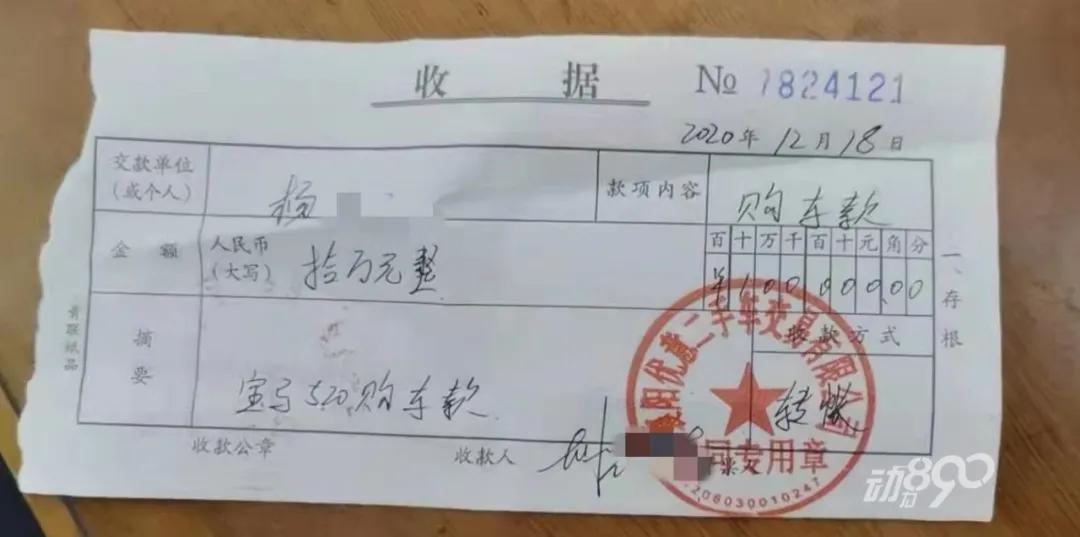 收据 № 1824121
2020年12月18日
交款单位
(或个人)
杨
款项内容
购车款
金额
人民币
(大写)
拾万元整
百十万千百十元角分
¥10000000
摘要
宝马520购车款
收款方式
转账
收款公章
收款人
阳优嘉二手车交易有限公司
同专用章
一、存根
青联纸品
动力890